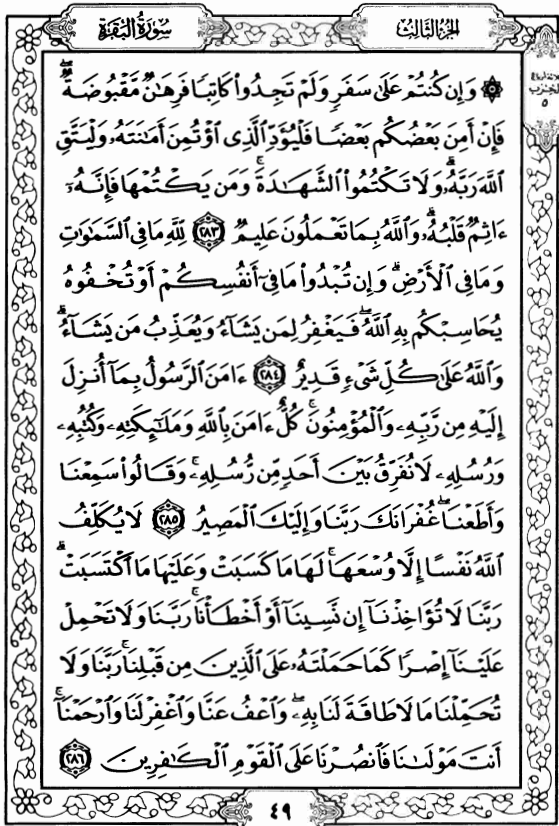 الجزء الثالث
سورة البقرة
الحزب
٥
۞ وَإِن كُنتُمْ عَلَىٰ سَفَرٍ وَلَمْ تَجِدُوا۟ كَاتِبًا فَرِهَـٰنٌ مَّقْبُوضَةٌ ۖ
فَإِنْ أَمِنَ بَعْضُكُم بَعْضًا فَلْيُؤَدِّ ٱلَّذِى ٱؤْتُمِنَ أَمَـٰنَتَهُۥ وَلْيَتَّقِ
ٱللَّهَ رَبَّهُۥ ۗ وَلَا تَكْتُمُوا۟ ٱلشَّهَـٰدَةَ ۚ وَمَن يَكْتُمْهَا فَإِنَّهُۥٓ
ءَاثِمٌ قَلْبُهُۥ ۗ وَٱللَّهُ بِمَا تَعْمَلُونَ عَلِيمٌ ٢٨٣ لِّلَّهِ مَا فِى ٱلسَّمَـٰوَٰتِ
وَمَا فِى ٱلْأَرْضِ ۗ وَإِن تُبْدُوا۟ مَا فِىٓ أَنفُسِكُمْ أَوْ تُخْفُوهُ
يُحَاسِبْكُم بِهِ ٱللَّهُ ۖ فَيَغْفِرُ لِمَن يَشَآءُ وَيُعَذِّبُ مَن يَشَآءُ ۗ
وَٱللَّهُ عَلَىٰ كُلِّ شَىْءٍ قَدِيرٌ ٢٨٤ ءَامَنَ ٱلرَّسُولُ بِمَآ أُنزِلَ
إِلَيْهِ مِن رَّبِّهِۦ وَٱلْمُؤْمِنُونَ ۚ كُلٌّ ءَامَنَ بِٱللَّهِ وَمَلَـٰٓئِكَتِهِۦ وَكُتُبِهِۦ
وَرُسُلِهِۦ لَا نُفَرِّقُ بَيْنَ أَحَدٍ مِّن رُّسُلِهِۦ ۚ وَقَالُوا۟ سَمِعْنَا
وَأَطَعْنَا ۖ غُفْرَانَكَ رَبَّنَا وَإِلَيْكَ ٱلْمَصِيرُ ٢٨٥ لَا يُكَلِّفُ
ٱللَّهُ نَفْسًا إِلَّا وُسْعَهَا ۚ لَهَا مَا كَسَبَتْ وَعَلَيْهَا مَا ٱكْتَسَبَتْ ۗ
رَبَّنَا لَا تُؤَاخِذْنَآ إِن نَّسِينَآ أَوْ أَخْطَأْنَا ۚ رَبَّنَا وَلَا تَحْمِلْ
عَلَيْنَآ إِصْرًا كَمَا حَمَلْتَهُۥ عَلَى ٱلَّذِينَ مِن قَبْلِنَا ۚ رَبَّنَا وَلَا
تُحَمِّلْنَا مَا لَا طَاقَةَ لَنَا بِهِۦ ۖ وَٱعْفُ عَنَّا وَٱغْفِرْ لَنَا وَٱرْحَمْنَآ ۚ
أَنتَ مَوْلَىٰنَا فَٱنصُرْنَا عَلَى ٱلْقَوْمِ ٱلْكَـٰفِرِينَ ٢٨٦
٤٩